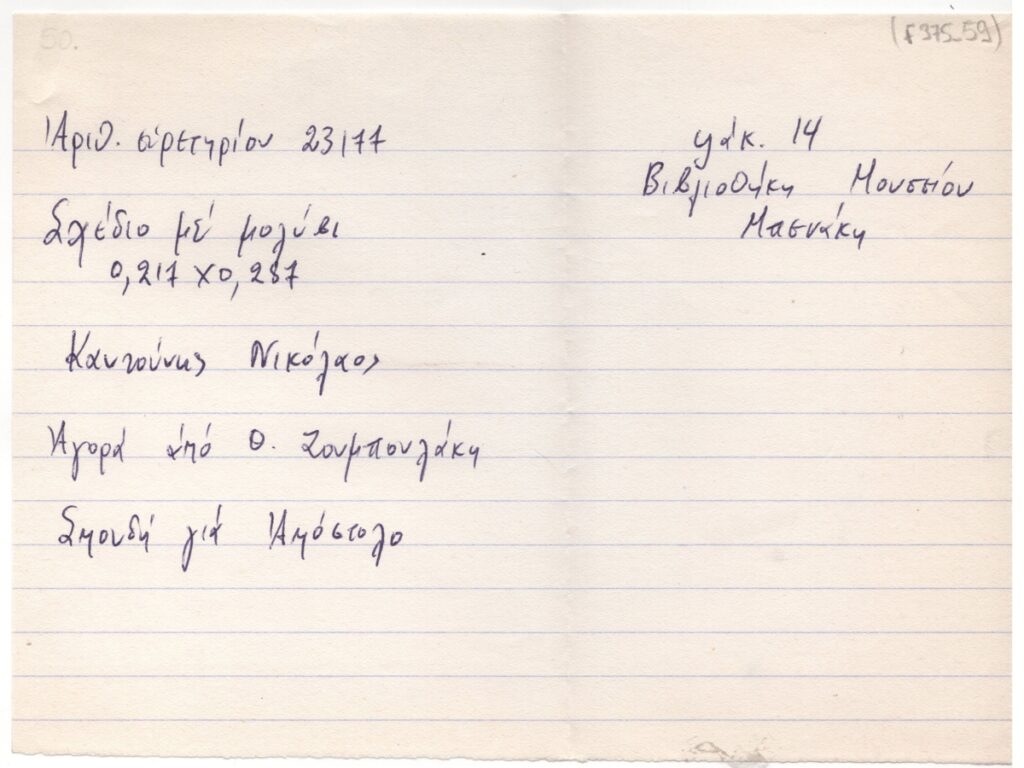 50.
(F375_59)
Ἀριθ. εὑρετηρίου 23177
Σχέδιο μέ μολύβι
0,217 X 0,287
Καντούνης Νικόλαος
Ἀγορά ἀπό Θ. Ζουμπουλάκη
Σπουδή γιά Ἀπόστολο
φάκ. 14
Βιβλιοθήκη Μουσείου
Μπενάκη